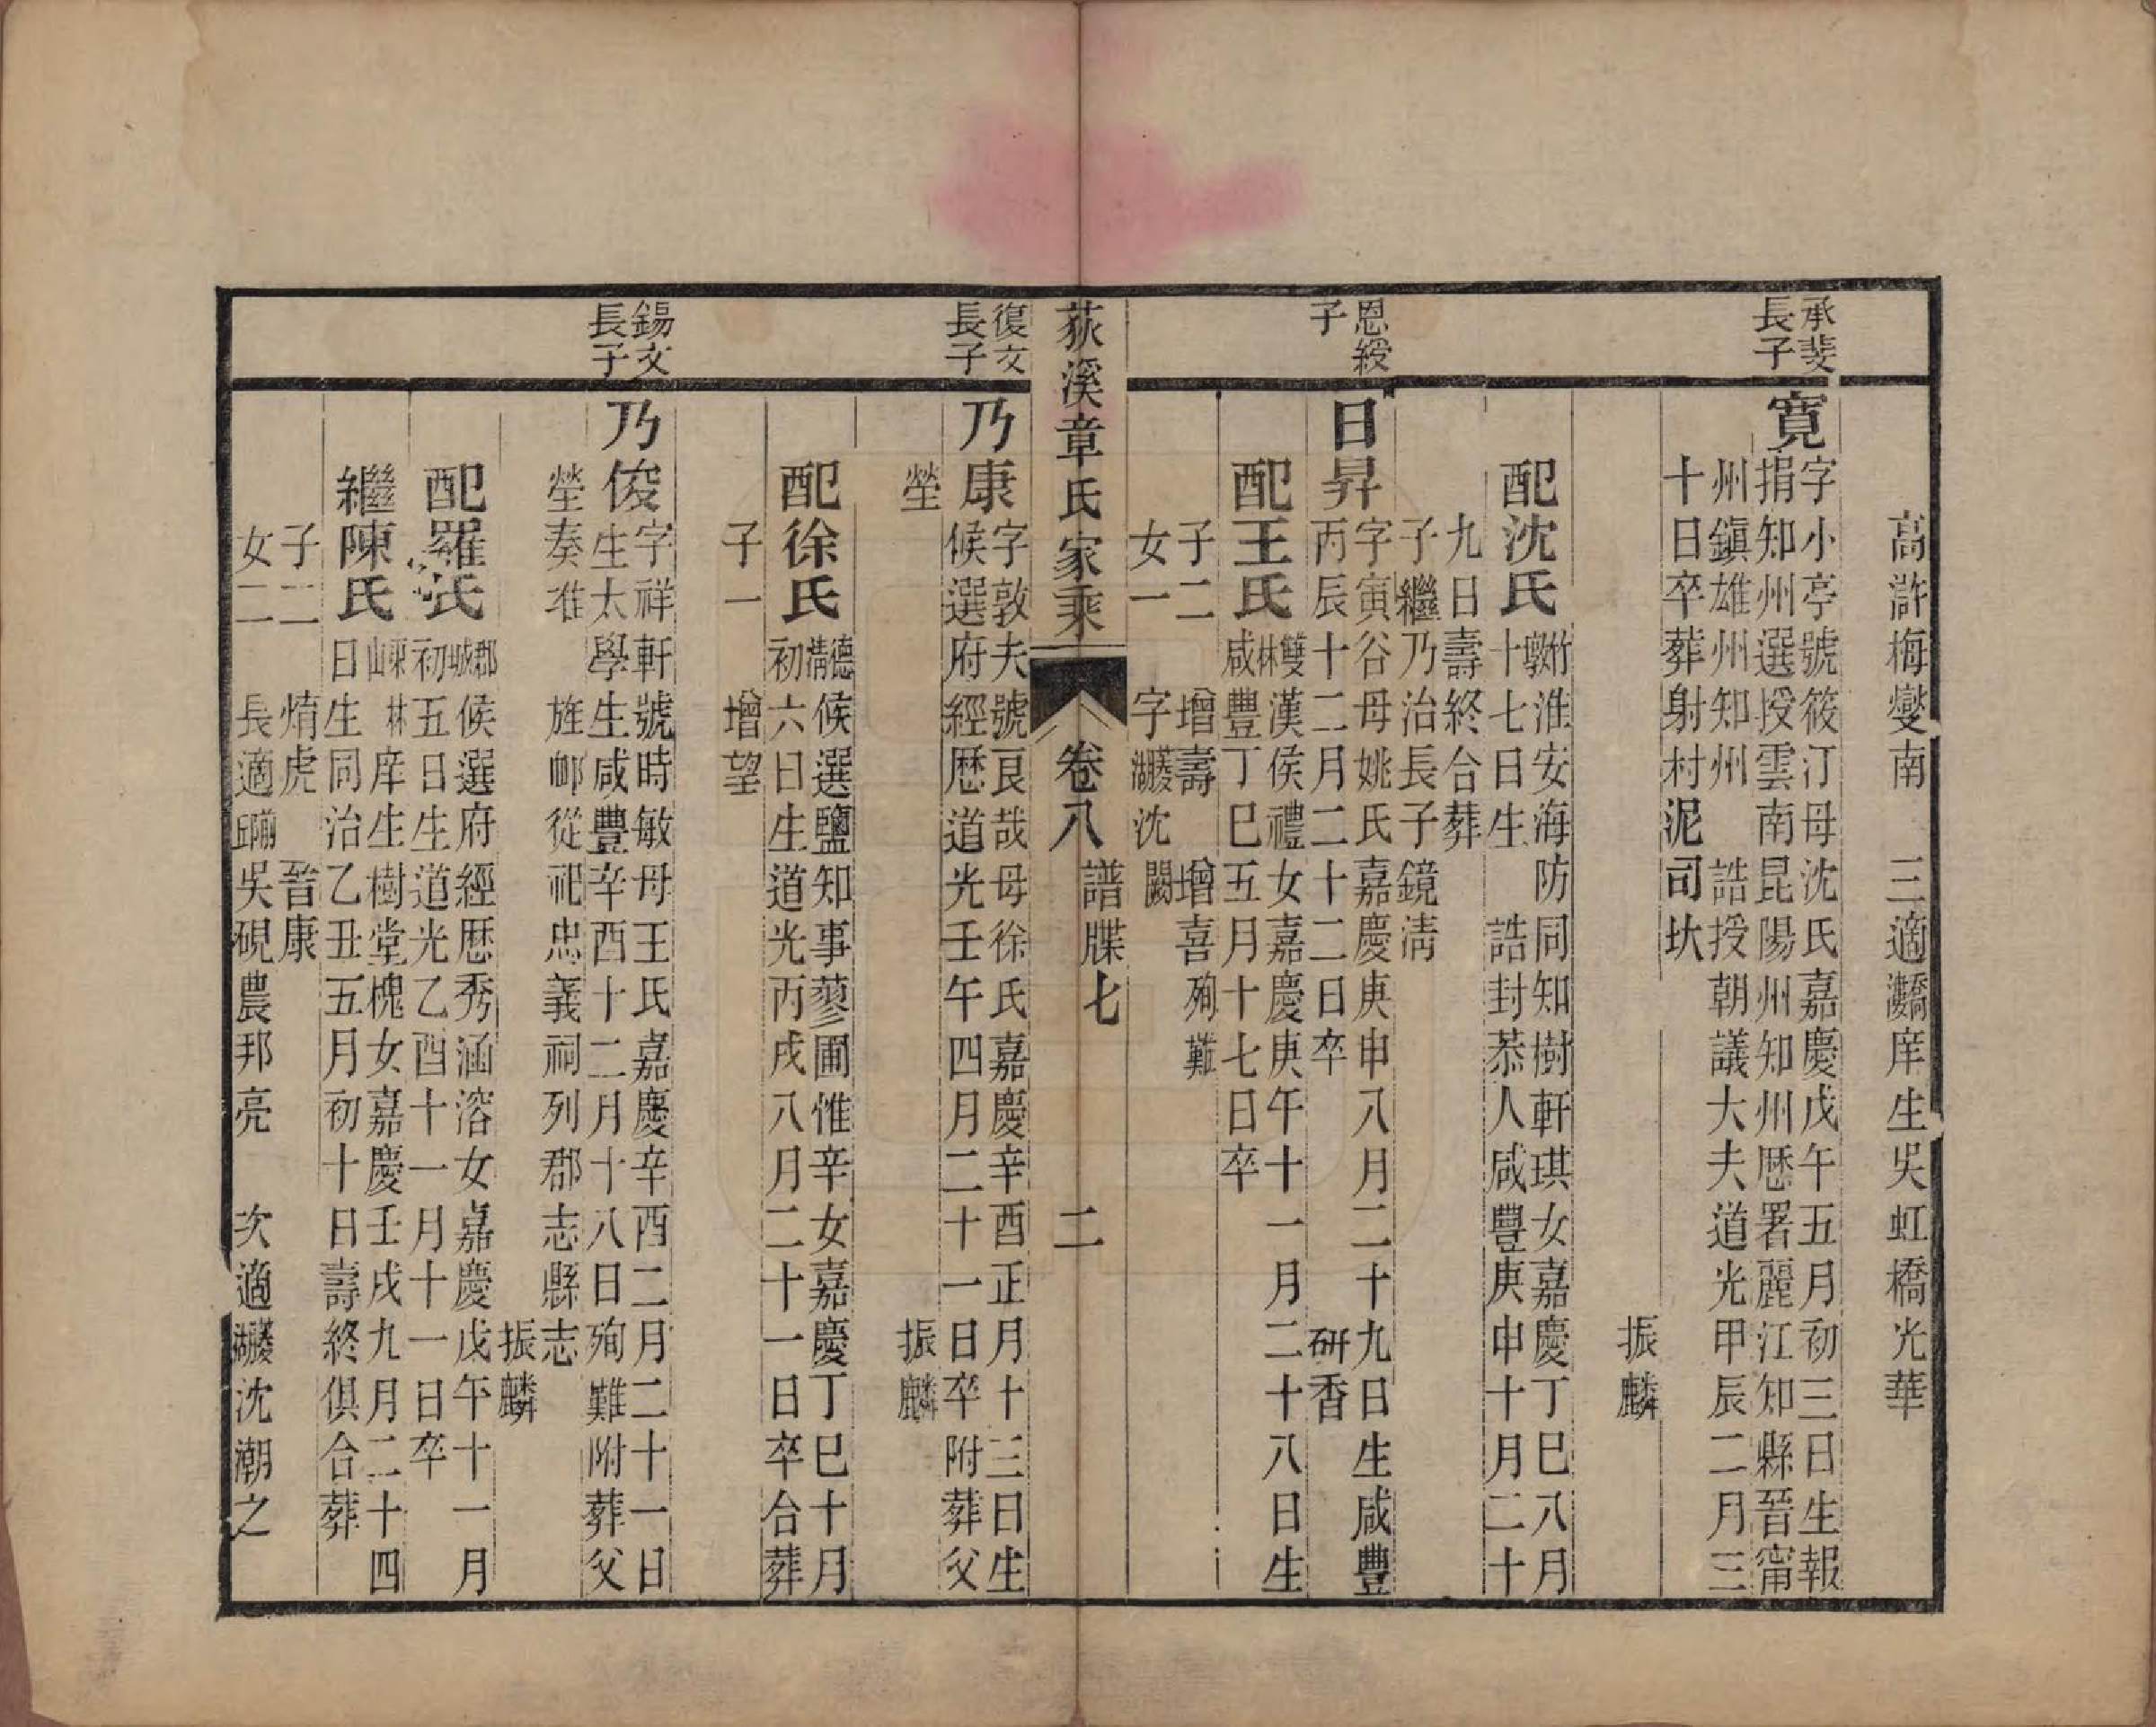 高滸梅燮南　三適庠生吳虹橋光華
承斐長子
寬
字小亭號筱汀母沈氏嘉慶戊午五月初三日生報
捐知州選授雲南昆陽州知州歷署麗江知縣晉甯
州鎮雄州知州　誥授朝議大夫道光甲辰二月三
十日卒葬射村泥司坎
振麟
配沈氏
竹墩淮安海防同知樹軒琪女嘉慶丁巳八月
十七日生　誥封恭人咸豐庚申十月二十
九日壽終合葬
子繼乃治長子鏡淸
恩綬子
日昇
字寅谷母姚氏嘉慶庚申八月二十九日生咸豐
丙辰十二月二十二日卒　研香
配王氏
雙林漢侯禮女嘉慶庚午十一月二十八日生
咸豐丁巳五月十七日卒
子二　增壽　增喜殉難
女一　字菱湖沈　闕
荻溪章氏家乘　卷八　譜牒七　二
復文長子
乃康
字敦夫號艮哉母徐氏嘉慶辛酉正月十三日生
候選府經歷道光壬午四月二十一日卒附葬父
塋　振麟
配徐氏
德淸候選鹽知事蓼圃惟辛女嘉慶丁巳十月
初六日生道光丙戌八月二十一日卒合葬
子一　增望
錫文長子
乃俊
字祥軒號時敏母王氏嘉慶辛酉二月二十一日
生太學生咸豐辛酉十二月十八日殉難附葬父
塋奏准　旌䘏從祀忠義祠列郡志縣志
振麟
配羅氏
郡城候選府經歷秀涵溶女嘉慶戊午十一月
初五日生道光乙酉十一月十一日卒
繼陳氏
東林山庠生樹堂槐女嘉慶壬戌九月二十四
日生同治乙丑五月初十日壽終俱合葬
子二　焴虎　晉康
女二　長適吳硯農邦亮　次適菱湖沈潮之